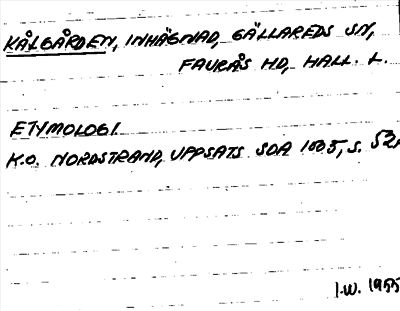 KÅLGÅRDEN, INHÄGNAD, GÄLLAREDS SN,
FAURÅS HD, HALL. L.
ETYMOLOGI.
K.O. NORDSTRAND, UPPSATS SOA 1005, S. 52.
I.W. 1955